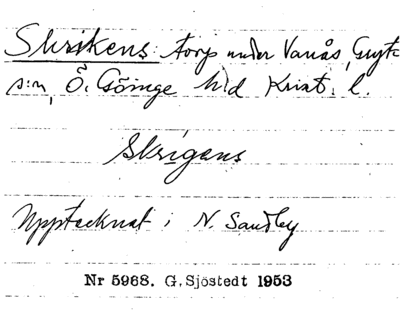 Skrikens: torp under Vanås, Gryt-
s:n, Ö. Göinge h:d Krist. l.
Skrigans
Upptecknat i N. Sandby
Nr 5968. G. Sjöstedt 1953